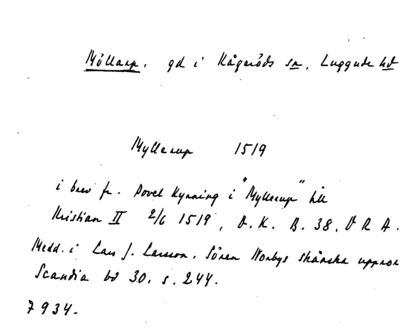 Möllarp. gd i Kågeröds sn, Luggude hd
Myllerup 1519
i brev fr. Povel Kynning i "Myllerup" till
Kristian II 2/6 1519, D. K. B. 38, D R A.
Medd. i Lars J. Larsson, Sören Norbys skånska uppror
Scandia bd 30, s. 244.
7934.